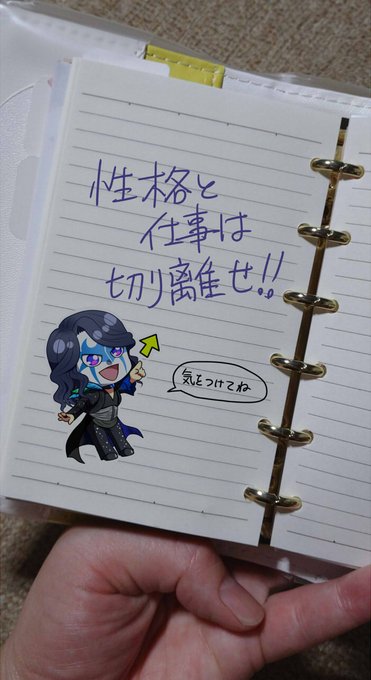 性格と
仕事は
切り離せ!!
気をつけてね